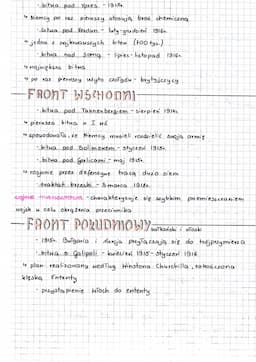 - bitwa pod Ypres - 1915r.
→ Niemcy po raz pierwszy stosują broń chemiczną
- bitwa pod Verdun - luty-grudzień 1916r.
→ jedna z najkrwawszych bitew (700 tys.)
- bitwa nad Sommą - lipiec-listopad 1916r.
→ największa bitwa
→ po raz pierwszy użyto czołgów - brytyjczycy
FRONT WSCHODNI
- bitwa pod Tannenbergiem - sierpień 1914r.
→ pierwsza bitwa w I WŚ
→ spowodowała, że Niemcy musieli rozdzielić swoją armię
- bitwa pod Bolimowem - styczeń 1915r.
- bitwa pod Gorlicami - maj 1915r.
→ rosjanie przez defensywę tracą dużo ziem
- traktat brzeski - 3 marca 1918r.
- charakteryzuje się szybkim przemieszczaniem
wojsk w celu okrążenia przeciwnika
FRONT POŁUDNIOWY bałkański i włoski
- 1915r. Bułgaria i Turcja przyłączają się do trójprzymierza
- bitwa o Galipoli - kwiecień 1915 - styczeń 1916
→ plan realizowany według Winstona Churchilla, zakończona
klęską Ententy
- przystąpienie Włoch do ententy